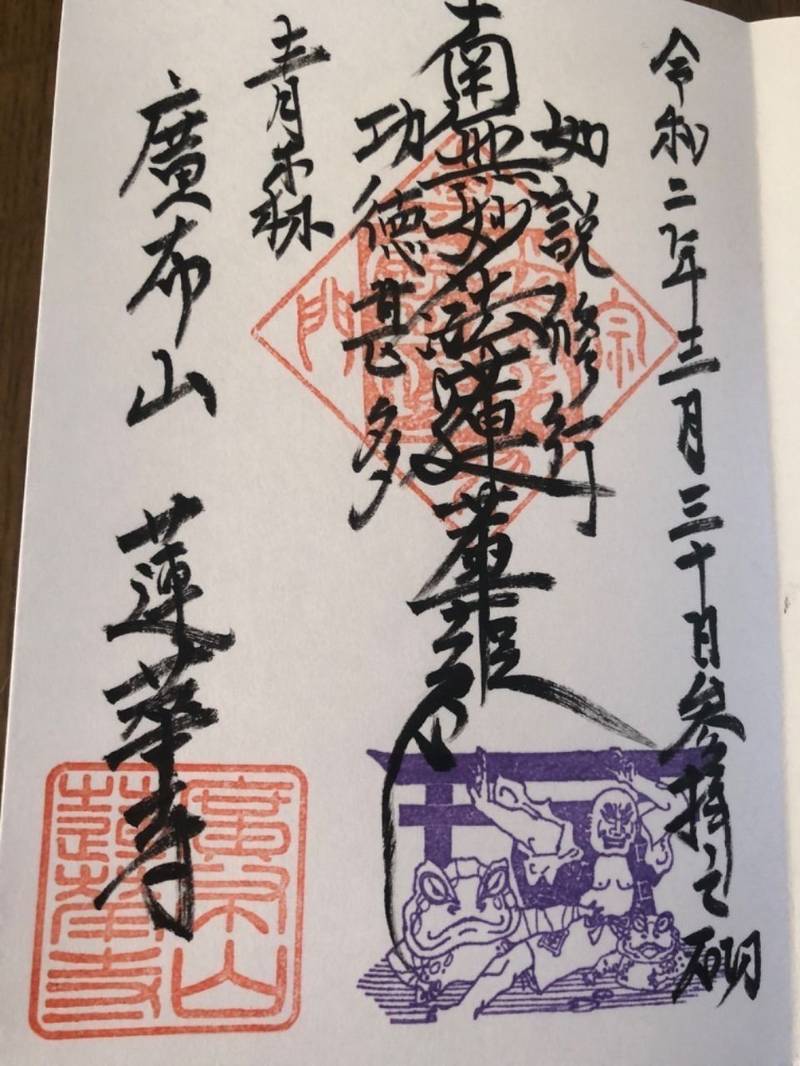 令和二年三月三十日参拝之砌
如説修行
南無妙法蓮華経
功徳甚多
青森
廣布山 蓮華寺
宗
門
廣布山
蓮華寺